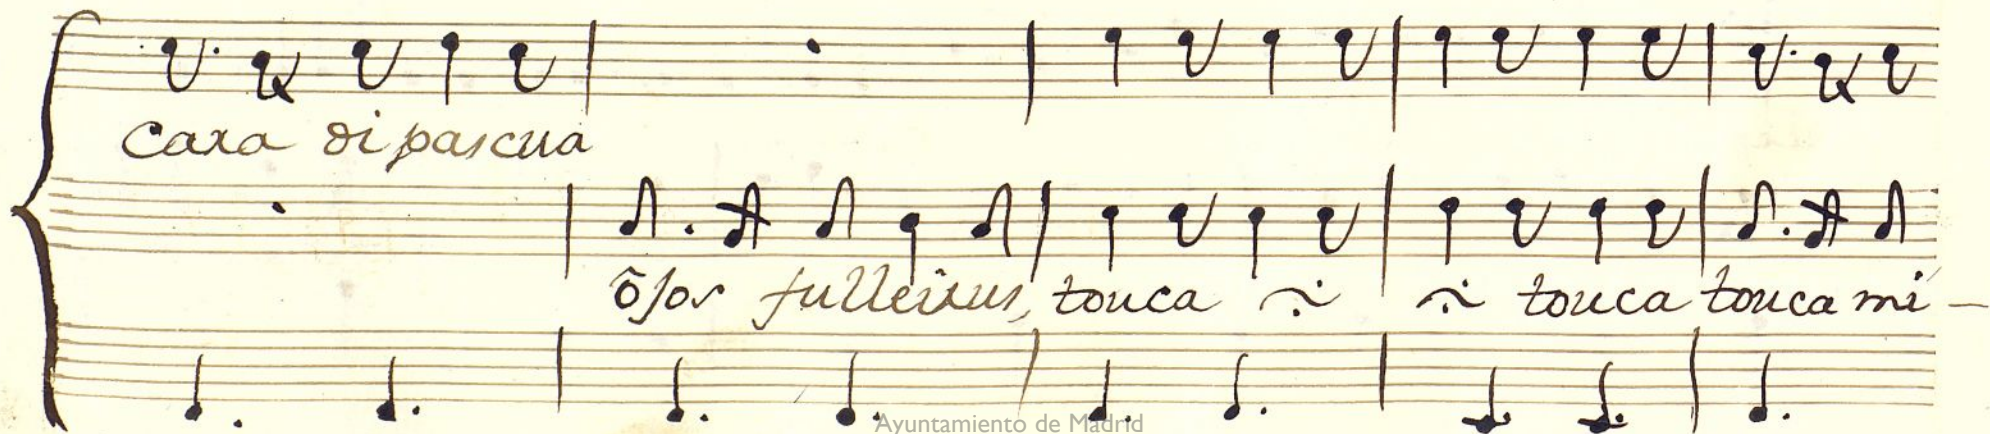 cara di pascua
ôjos fulleirus, touca ∻ ∻ touca touca mi-
Ayuntamiento de Madrid